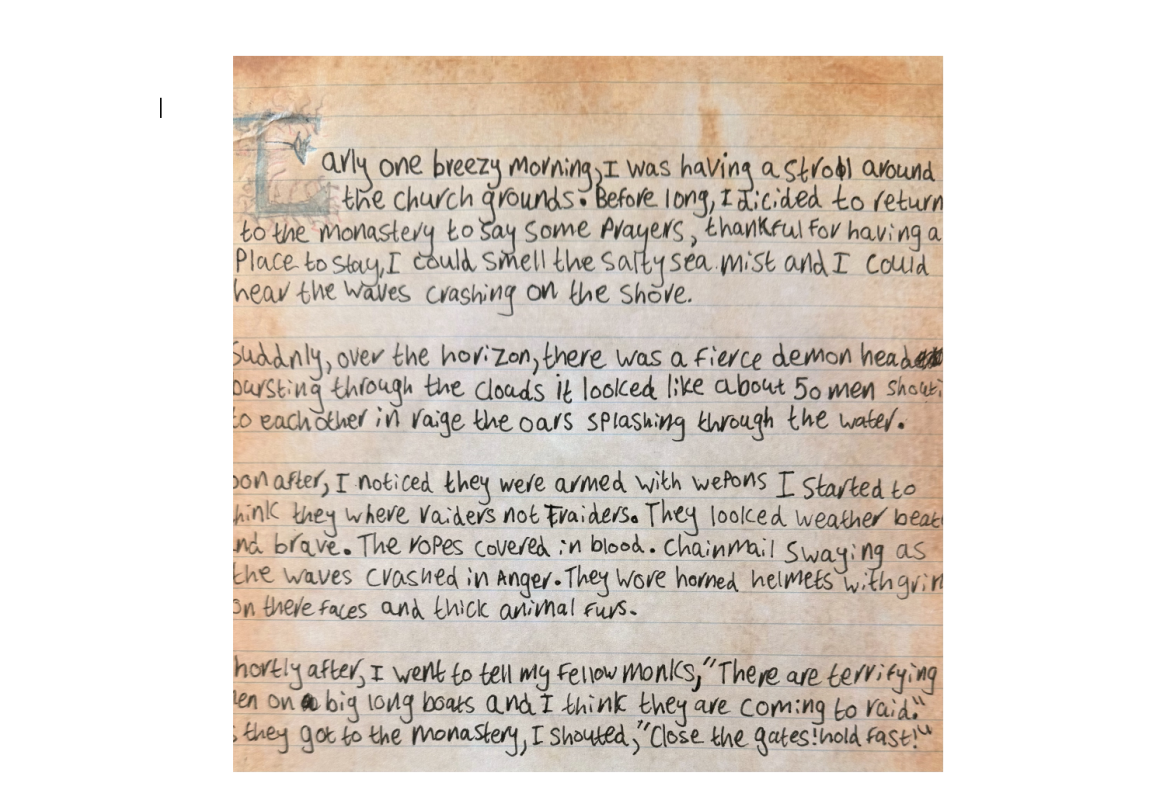 Early one breezy morning, I was having a stroll around
the church grounds. Before long, I dicided to return
to the monastery to say some Prayers, thankful for having a
Place to stay, I could smell the salty sea mist and I could
hear the waves crashing on the shore.
Suddnly, over the horizon, there was a fierce demon head
bursting through the clouds it looked like about 50 men shouti
to each other in raige the oars splashing through the water.
oon after, I noticed they were armed with wepons I started to
hink they where raiders not traiders. They looked weather beat
nd brave. The ropes covered in blood. Chainmail swaying as
the waves crashed in Anger. They wore horned helmets with grin
on there faces and thick animal furs.
hortly after, I went to tell my fellow monks, "There are terrifying
en on big long boats and I think they are coming to raid."
they got to the monastery, I shouted, "Close the gates! hold fast!"